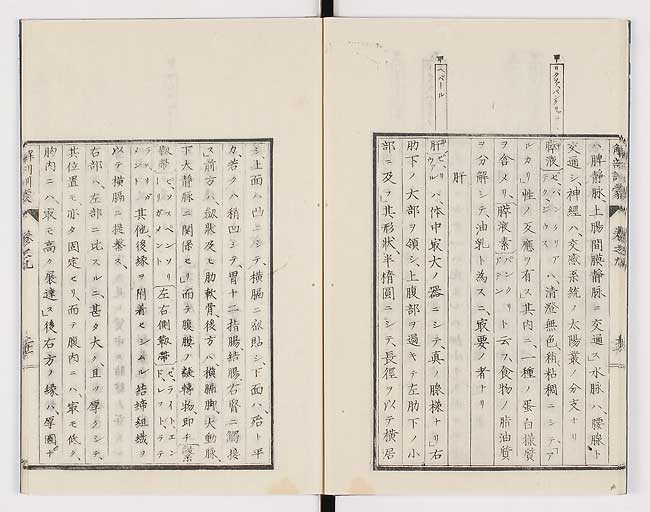 ハ脾静脉、上腸間膜静脉ニ交通ス水脉ハ、腰腺ト
交通シ、神経ハ、交感系統ノ太陽叢ノ分支ナリ
膵液ハ、清澄無色稍粘稠ニシテ、ア
ルカリ性ノ反應ヲ有ス」其内ニ、一種ノ蛋白様質
ヲ含メリ、膵液素ト云フ食物ノ脂油質
ヲ分解シテ、油乳ト為スニ、最要ノ者ナリ
肝
肝ハ、体中最大ノ器ニシテ、真ノ腺様ナリ」右
肋下ノ大部ヲ領シ、上腹部ヲ過キテ左肋下ノ小
部ニ及フ」其形状、半楕圓ニシテ、長徑ヲ以テ横居
ヘパール
シ、上面ハ凸ニシテ、横膈ニ密貼シ、下面ハ、殆ト平
カ、若クハ稍凹ニシテ、胃十二指腸、結腸、右腎ニ觸接
ス」前方ハ、劔状及モ肋軟骨、後方ハ、横膈脚、大動脉、
下大静脉ニ関係セリ」而テ腹膜ノ皺轉物即チ
靱帯 左右側靱帯
其他後縁ヲ附着セシムル結締組織ヲ
以テ横膈ニ提繫ス、
右部ハ、左部ニ比スルニ、甚タ大ク、且ツ厚クシテ、
其位置モ亦タ固定セリ、而テ腹内ニハ、最モ低ク、
胸内ニハ、最モ高ク展達ス」後右方ノ縁ハ、厚圓ナ